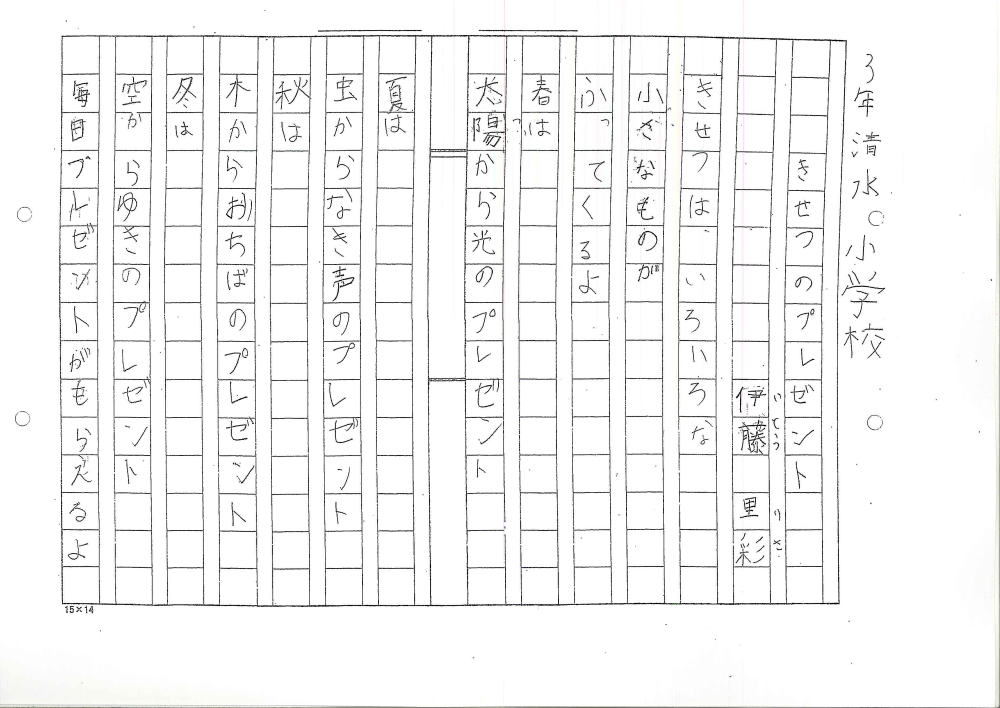 3年 清水小学校
きせつのプレゼント
伊藤 里彩
いとう りさ
きせつは、いろいろな
小さなものが
ふってくるよ
春は
太陽から光のプレゼント
夏は
虫からなき声のプレゼント
秋は
木からおちばのプレゼント
冬は
空からゆきのプレゼント
毎日プレゼントがもらえるよ
15×14